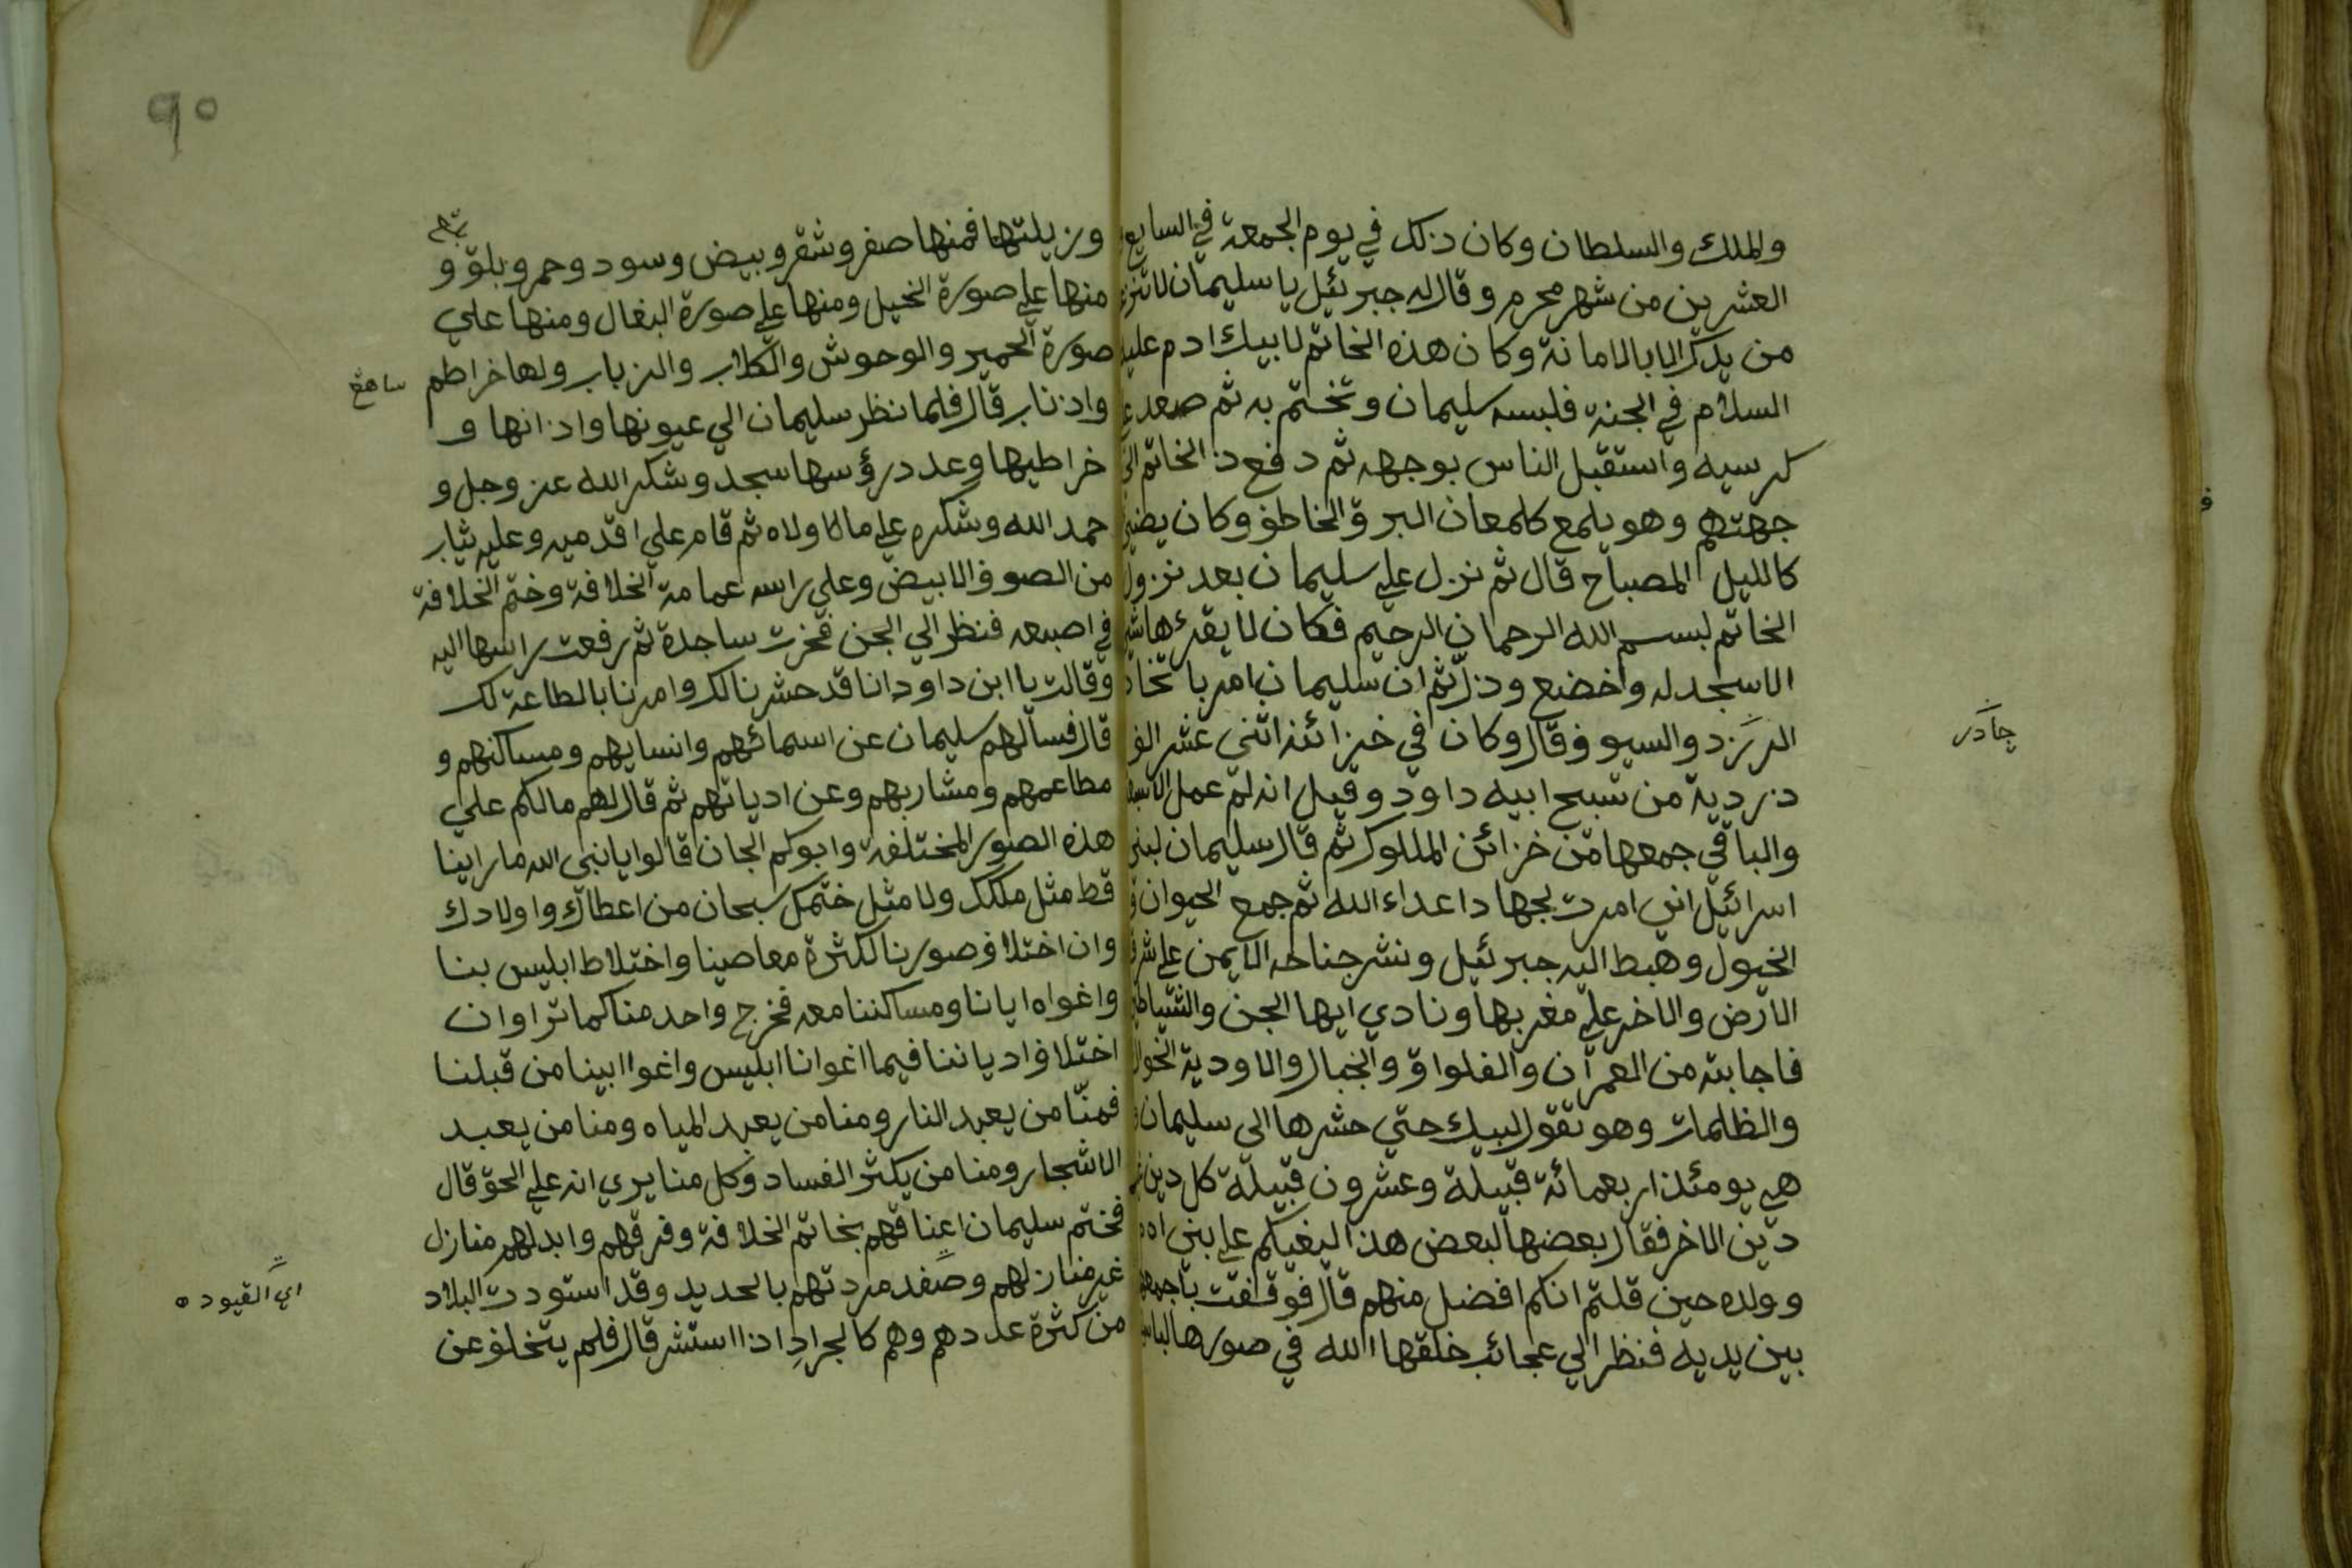 والملك والسلطان وكان ذلك في يوم الجمعة في السابع
العشرين من شهر محرم وقال له جبرئيل يا سليمان لا تنزع
من يدك الا بالامانة وكان هذه الخاتم لابيك ادم عليه
السلام في الجنة فلبسه سليمان وتختم به ثم صعد
كرسيه واستقبل الناس بوجهه ثم دفع ذ الخاتم الي
جهتهم وهو يلمع كلمعان البرق الخاطف وكان يضئ
كالليل المصباح قال ثم نزل علي سليمان بعد نزول
الخاتم لبسم الله الرحمان الرحيم فكان لا يقرءها
الا سجد له واخضع وذل ثم ان سليمان امر باتخاذ
الزرد والسيوف وقال وكان في خزائنه اثني عشر الف
دردية من تسبح ابيه داود وقيل انه لم عمل
والباقي جمعها من خزائن الملوك ثم قال سليمان لبني
اسرائيل اني امرت بجهاد اعداء الله ثم جمع الحيوان
الخيول وهبط اليه جبرئيل ونشر جناحه الايمن علي شرق
الارض والاخر علي مغربها ونادي ايها الجن والشياطين
فاجابته من العمران والفلواة والجبال والاودية
والظلمات وهو تقول لبيك حتي حشرها الي سليمان
هي يومئذ اربعمائة قبيلة وعشرون قبيلة كل دين
دين الاخر فقال بعضها لبعض هذا لبغيكم علي بني
وولده حين قلتم انكم افضل منهم قال فوقفت باجمعها
بين يديه فنظر الي عجائب خلقها الله في صورها
جادر
وزيلتها فمنها صفر وشقر وبيض وسود وحمر وبلق و
منها علي صورة الخيل ومنها علي صورة البغال ومنها علي
صورة الحمير والوحوش والكلاب والزباب ولها خراطم
واذناب قال فلما نظر سليمان الي عيونها واذانها و
خراطيها وعدد رؤسها سجد وشكر الله عز وجل و
حمد الله وشكره علي ما اولاه ثم قام علي اقدميه وعليه ثياب
من الصوف الابيض وعلي راسه عمامة الخلافة وختم الخلافة
في اصبعه فنظر الي الجن فخرت ساجدة ثم رفعت راسها اليه
وقالت يا ابن داود انا قد حشرنا لك وامرنا بالطاعة لك
قال فسألهم سليمان عن اسمائهم وانسابهم ومساكنهم و
مطاعمهم ومشاربهم وعن اديانهم ثم قال لهم مالكم علي
هذه الصور المختلفة وابوكم الجان قالوا يا نبي الله ما راينا
قط مثل ملكك ولا مثل ختمك سبحان من اعطاك واولادك
وان اختلاف صورنا لكثرة معاصينا واختلاط ابليس بنا
واغواه ايانا ومساكننا معه فخرج واحد منا كما ترا وان
اختلاف ادياننا فيما اغوانا ابليس واغوا ابينا من قبلنا
فمنّا من يعبد النار ومنا من يعبد المياه ومنا من يعبد
الاشجار ومنا من يكثر الفساد وكل منا يري انه علي الحق قال
فختم سليمان اعناقهم بخاتم الخلافة وفرقهم وابدلهم منازل
غير منازلهم وصفد مردتهم بالحديد وقد استودت البلاد
من كثرة عددهم وهم كالجراد اذا استشر قال فلم يتخلف عن
اي القيوده
٩٠